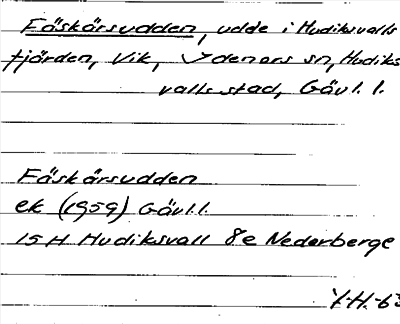 Fäskårsudden, udde i Hudiksvalls
fjärden, Vik, denors sn, Hudiks
valls stad, Gävl. l.
Fäskårsudden
ek (1959) Gävl l.
15 H Hudiksvall 8e Nederberge
Y-H.-63